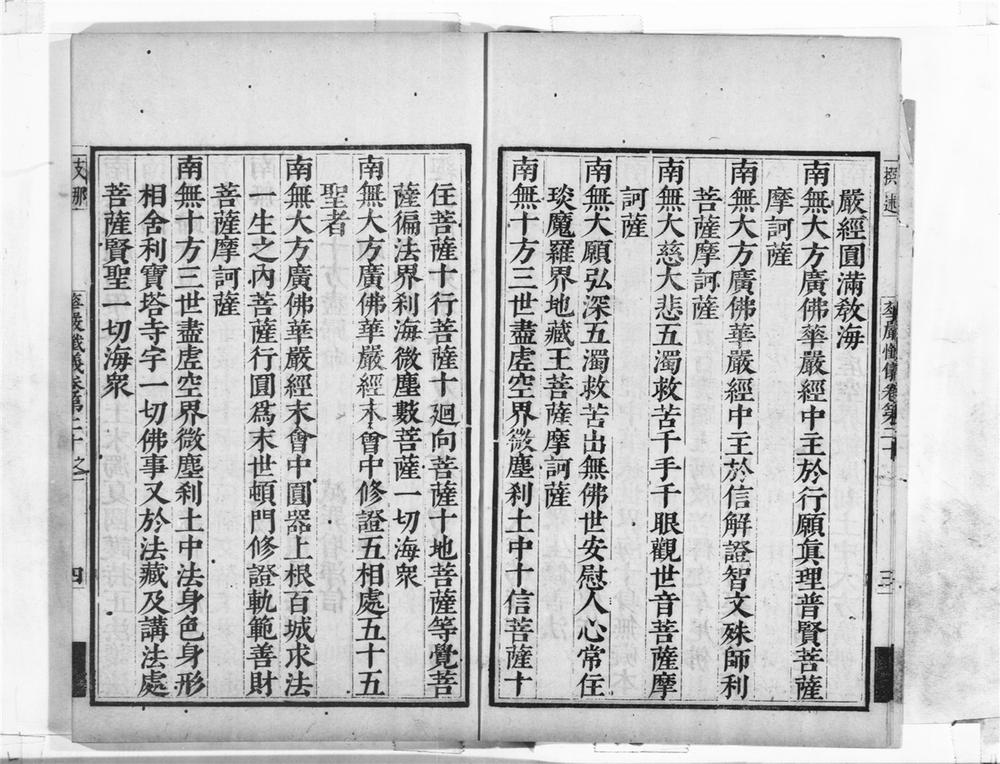 撰述
華嚴懺儀卷第二十之一
三
嚴經圓滿敎海
南無大方廣佛華嚴經中主於行願眞理普賢菩薩
摩訶薩
南無大方廣佛華嚴經中主於信解證智文殊師利
菩薩摩訶薩
南無大慈大悲五濁救苦千手千眼觀世音菩薩摩
訶薩
南無大願弘深五濁救苦出無佛世安慰人心常住
琰魔羅界地藏王菩薩摩訶薩
南無十方三世盡虛空界微塵刹土中十信菩薩十
住菩薩十行菩薩十廻向菩薩十地菩薩等覺菩
薩徧法界刹海微塵數菩薩一切海衆
南無大方廣佛華嚴經末會中修證五相處五十五
聖者
南無大方廣佛華嚴經末會中圓器上根百城求法
一生之內菩薩行圓爲末世頓門修證軌範善財
菩薩摩訶薩
南無十方三世盡虛空界微塵刹土中法身色身形
相舍利寶塔寺宇一切佛事又於法藏及講法處
菩薩賢聖一切海衆
支那
華嚴懺儀卷第二十之一
四